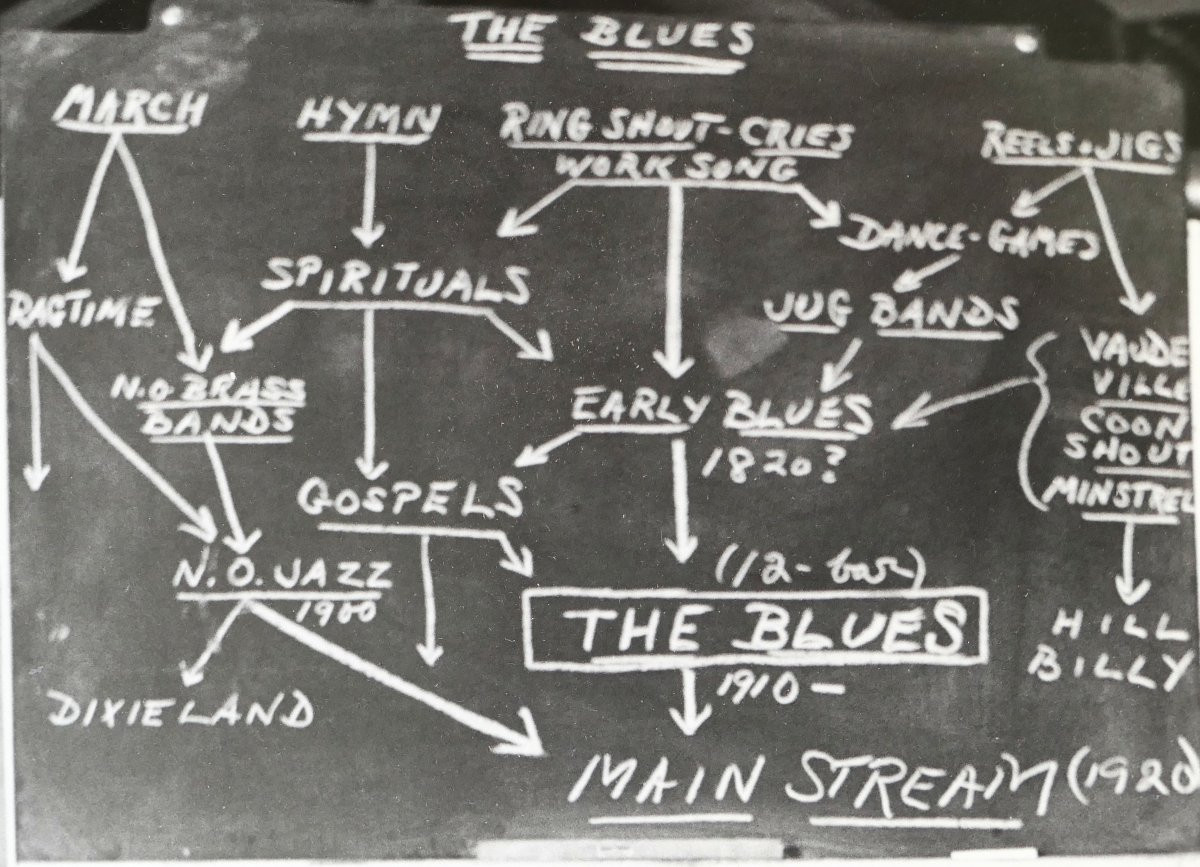 THE BLUES
MARCH
HYMN
RING SHOUT-CRIES
WORK SONG
REELS & JIGS
DANCE-GAMES
SPIRITUALS
RAGTIME
JUG BANDS
VAUDE
VILLE
COON
SHOUT
MINSTREL
N.O. BRASS
BANDS
EARLY BLUES
1820?
GOSPELS
N.O. JAZZ
1900
(12-bar)
THE BLUES
1910-
HILL
BILLY
DIXIELAND
MAIN STREAM (1920)